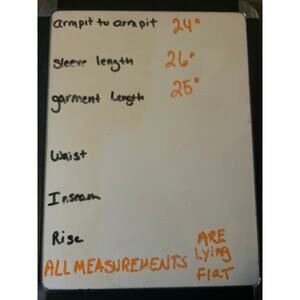 armpit to armpit 24"
sleeve length 26"
garment length 25"
Waist
Inseam
Rise
ALL MEASUREMENTS ARE
Lying
FlaT